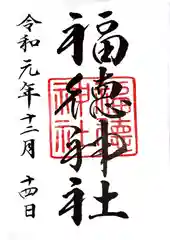 福徳神社
福徳神社
令和元年十二月十四日